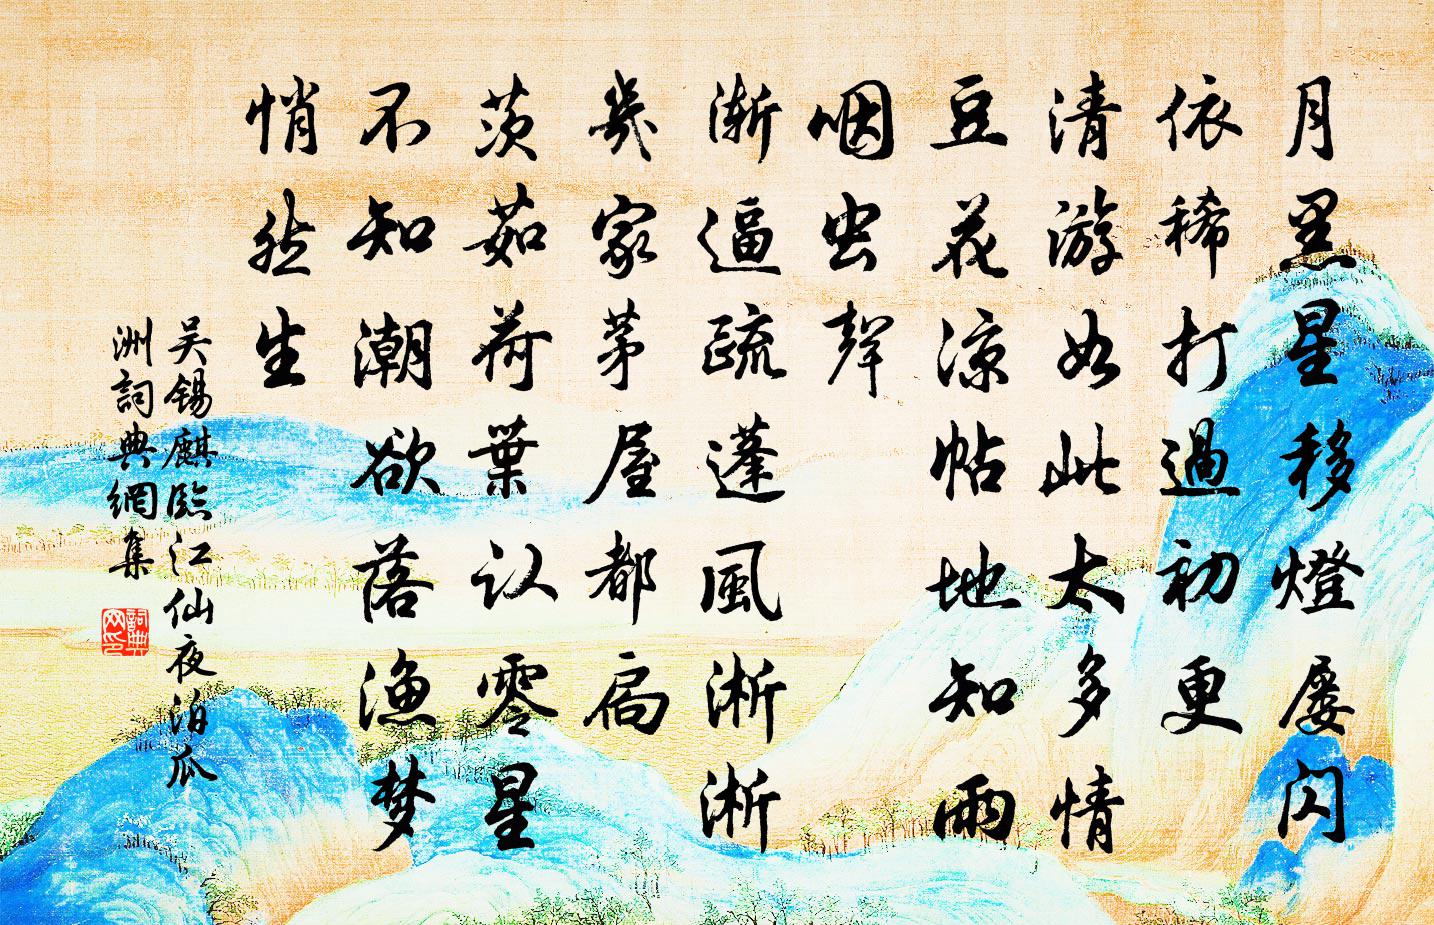 月黑星移燈屡闪
依稀打過初更
清游如此太多情
豆花凉帖地知雨
咽虫聲
渐逼疏蓬風淅淅
幾家茅屋都扃
茨茹荷葉认零星
不知潮欲落渔梦
悄然生
吴錫麒臨江仙夜泊瓜
洲詞典網集
詞典
网印